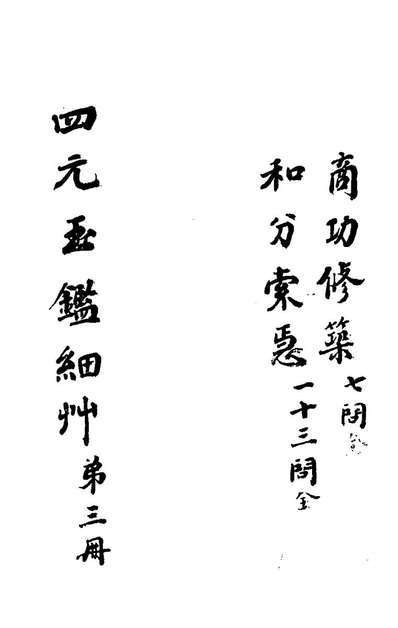 商功修築七問
和分索隱一十三問全
四元玉鑑細艸弟三冊